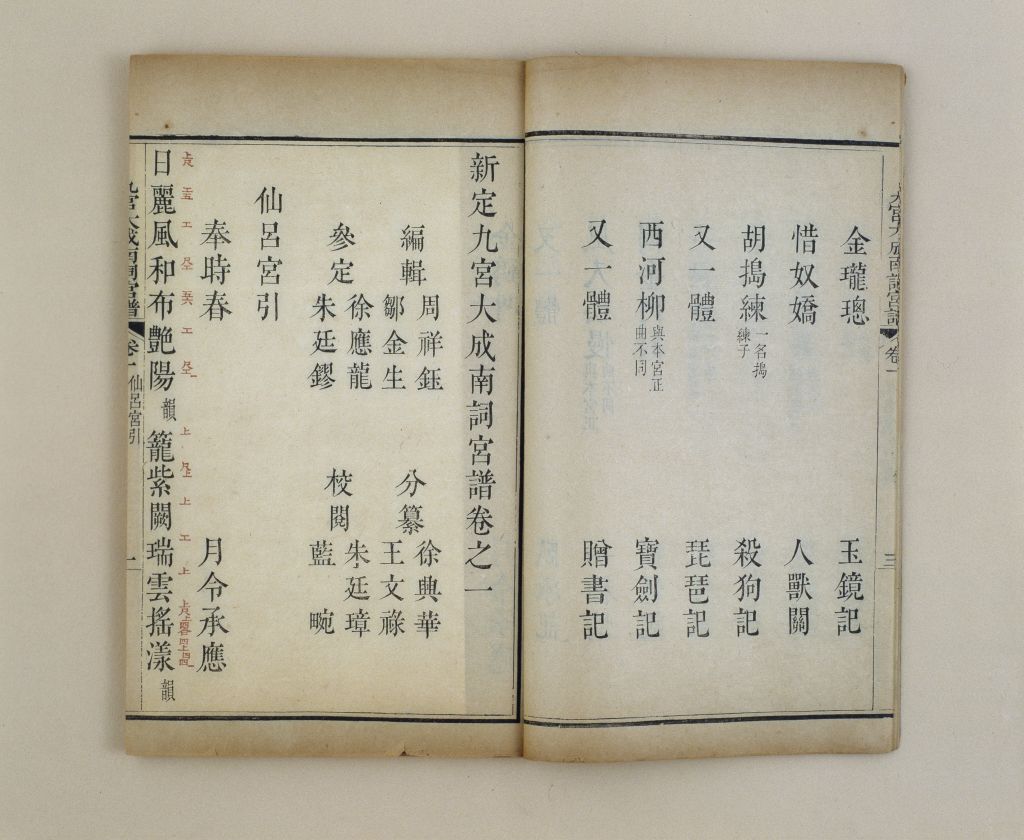 金瓏璁　玉鏡記
惜奴嬌　人獸關
胡搗練一名搗練子　殺狗記
又一體　琵琶記
西河柳與本宮正曲不同　寶劍記
又一體　贈書記
新定九宮大成南詞宮譜卷之一
編輯　周祥鈺　鄒金生　分纂　徐興華　王文祿
參定　徐應龍　朱廷鏐　校閱　朱廷璋　藍畹
仙呂宮引
奉時春　月令承應
日麗風和布艷陽韻籠紫闕瑞雲搖漾韻
九宮大成南詞宮譜　卷一　仙呂宮引　一